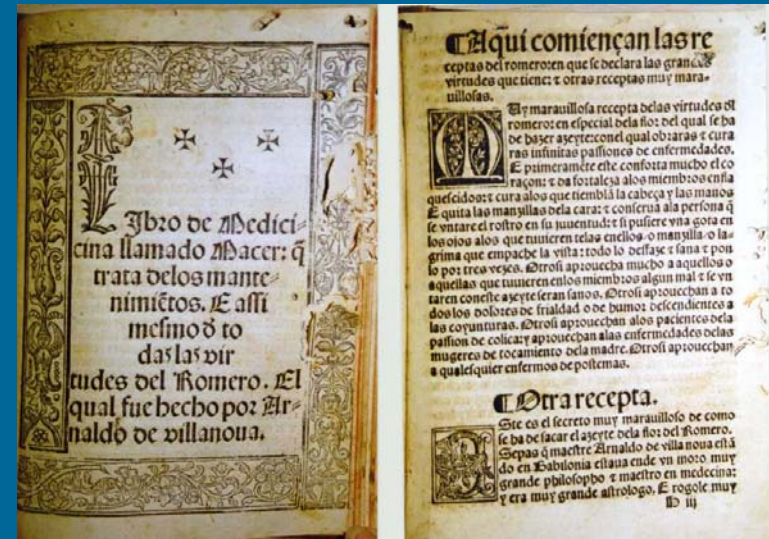 LJbro de Medici-
cina llamado Macer: q̃
trata delos mante-
nimiẽtos. E assi
mesmo d̃ to
das las vir
tudes del Romero. El
qual fue hecho por Ar-
naldo de villanoua.
¶ Aqui comiençan las re
ceptas del romero: en que se declara las grandes
virtudes que tiene: ⁊ otras receptas muy mara-
uillosas.
MUy marauillosa recepta delas virtudes dl
romero: en especial dela flor del qual se ha
de hazer azeyte: conel qual obraras ⁊ cura
ras infinitas passiones de enfermedades.
E primeramẽte este conforta mucho el co
raçon: ⁊ da fortaleza alos miembros enfla
quescidos: ⁊ cura alos que tiemblã la cabeça y las manos
E quita las manzillas dela cara: ⁊ conserua ala persona q̃
se vntare el rostro en su juuentud: ⁊ si pusiere vna gota en
los ojos alos que tuuieren telas enellos o manzilla o la-
grima que empache la vista: todo lo desfaze ⁊ sana ⁊ pon
lo por tres vezes. Otrosi aprouecha mucho a aquellos o
aquellas que tuuieren enlos miembros algun mal ⁊ se vn
taren coneste azeyte seran sanos. Otrosi aprouechan a to
dos los dolores de frialdad o de humor descendientes a
las coyunturas. Otrosi aprouechan alos pacientes dela
passion de colica: y aprouechan alas enfermedades delas
mugeres de tocamiento dela madre. Otrosi aprouechan
a qualesquier enfermos de postemas.
¶ Otra recepta.
ESte es el secreto muy marauilloso de como
se ha de sacar el azeyte dela flor del Romero.
Sepas q̃ maestre Arnaldo de villa noua estã
do en Babilonia estaua ende vn moro muy
grande philosopho ⁊ maestro en medecina:
y era muy grande astrologo. E rogole muy
D iij